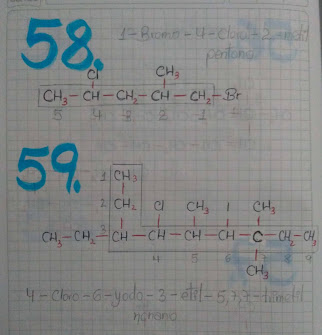 58.
1-Bromo-4-Cloro-2-metil
pentano
Cl CH₃
CH₃-CH-CH₂-CH-CH₂-Br
5 4 3 2 1
59.
1 CH₃
2 CH₂ Cl CH₃ I CH₃
CH₃-CH₂-3 CH-CH-CH-CH-C-CH₂-CH₃
4 5 6 7 8 9
CH₃
4-Cloro-6-yodo-3-etil-5,7,7-trimetil
nonano